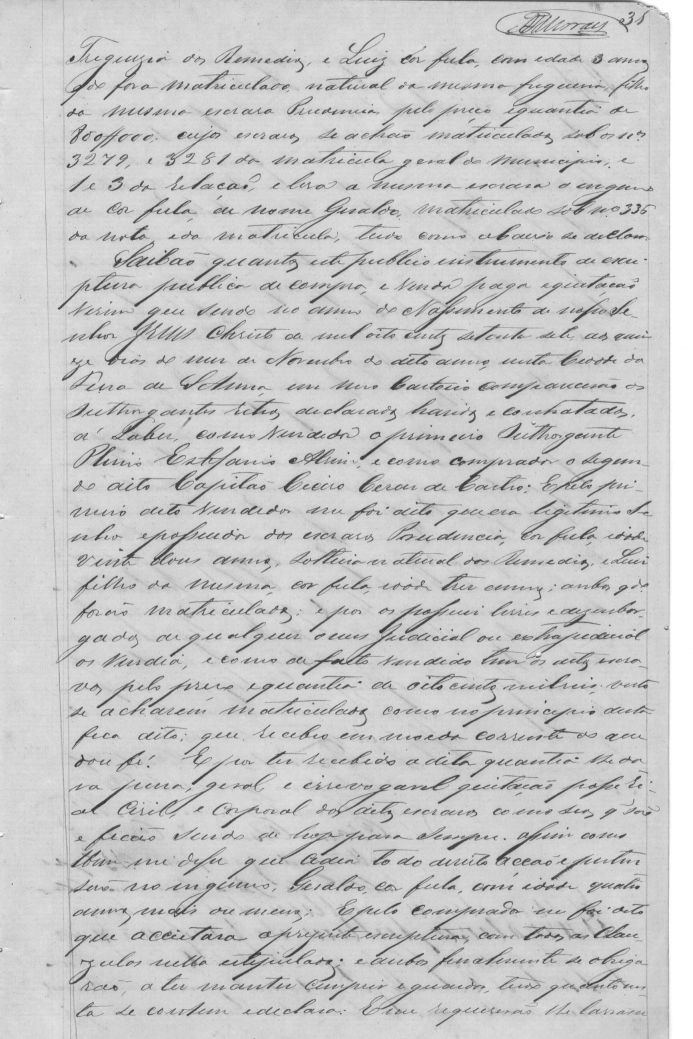 38
Freguezia dos Remedios, e Luiz côr fula, com edade 3 annos
q̃do fora matriculado, natural da mesma freguezia, filho
da mesma escrava Prudencia, pelo preço e quantia de
800$000, cujos escravos se achão matriculados sob os nos
3279, e 3281 da matricula geral do Municipio, e
1 e 3 da relação, e leva a mesma escrava o ingenuo
de cor fula, de nome Geraldo, matriculado sob no 335
da nota e da matricula, tudo como abaixo se declara.
Saibão quantos este publico instrumento de escri-
ptura publica de compra, e venda paga e quitação
virem que sendo no anno do Nascimento de nosso Se-
nhor Jesus Christo de mil oito centos setenta sete, aos quin-
ze dias do mez de Novembro do dito anno, nesta Cidade da
Feira de Sant'Anna em meo Cartorio comparecerão os
outhorgantes retro declarados, havidos e contratados,
á Saber, como vendedor o primeiro outhorgante
Plinio, e como comprador o segun-
do dito Capitão Cicero Cesar de Castro: E pelo pri-
meiro dito vendedor me foi dito que era legitimo Se-
nhor e possuidor dos escravos Prudencia, cor fula, idade
vinte dous annos, solteira natural dos Remedios, e Luiz
filho da mesma, cor fula, idade tres annos; ambos q̃do
forão matriculados; e por os possuir livres e dezembar-
gados de qualquer onus judicial ou extrajudicial
os vendia, e como de facto vendido tem os ditos escra-
vos pelo preço e quantia de oito centos mil reis, visto
se acharem matriculados como no principio desta
fica dito; que recebeo em moeda corrente do que
dou fé. E por ter recebido a dita quantia lhe da-
va plena, geral, e irrevogavel quitação posse Re-
al Civil, e Corporal dos ditos escravos como seos, q̃ são
e ficão sendo de hoje para sempre. assim como
tbem me disse que cedia todo direito acção e perten-
ser no ingenuo, Geraldo, cor fula, com idade quatro
annos, mais ou menos; E pelo comprador me foi dito
que acceitava a presente escriptura, com todas as Clau-
zulas nella estipuladas; e ambos finalmente se obriga-
rão, a ter manter cumprir e guardar, tudo quanto nes-
ta se contem e declara: E me requererão lhe lavrasse